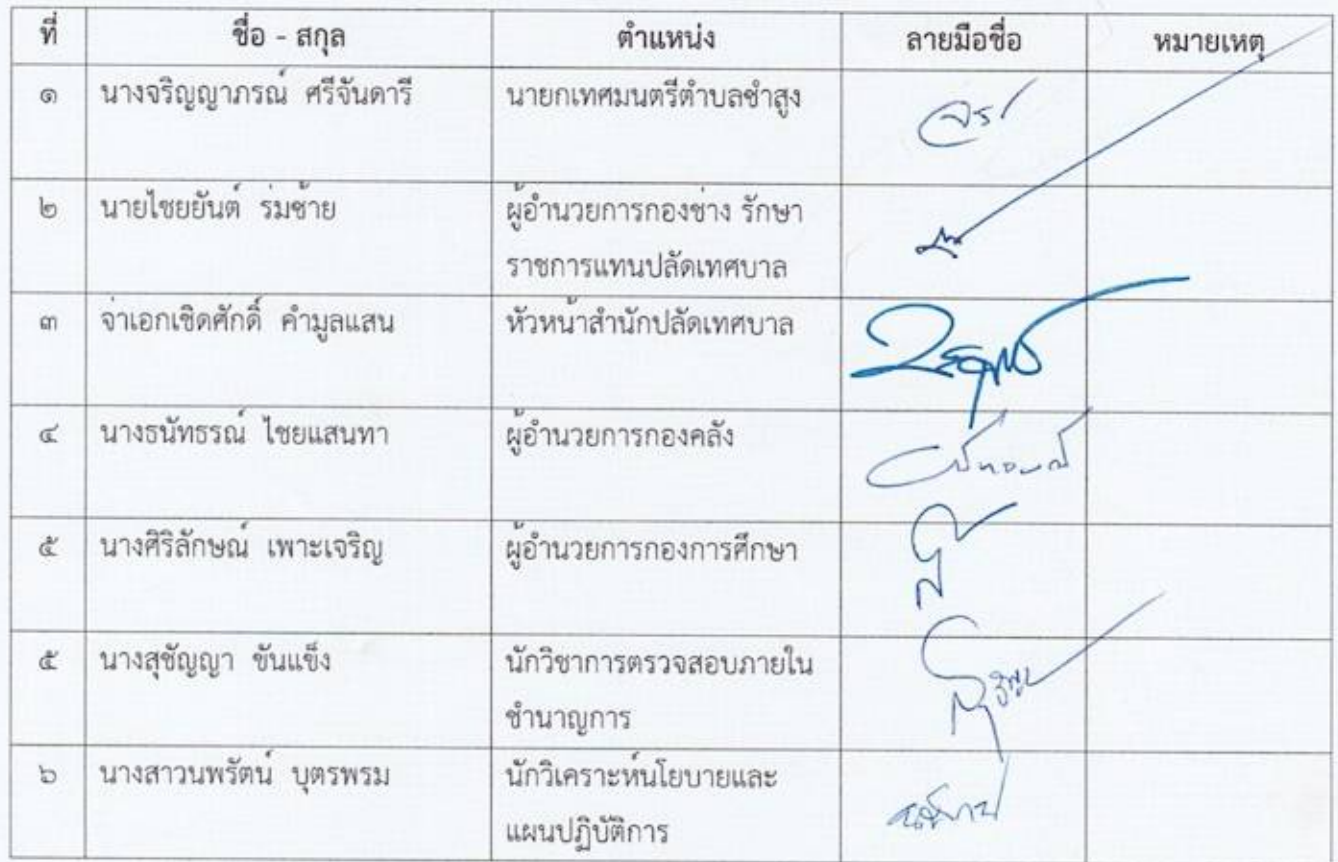 ที่ ชื่อ - สกุล ตำแหน่ง ลายมือชื่อ หมายเหตุ
๑ นางจริญญาภรณ์ ศรีจันดารี นายกเทศมนตรีตำบลซำสูง
๒ นายไชยยันต์ ร่มซ้าย ผู้อำนวยการกองช่าง รักษา
ราชการแทนปลัดเทศบาล
๓ จ่าเอกเชิดศักดิ์ คำมูลแสน หัวหน้าสำนักปลัดเทศบาล
๔ นางธนัทธรณ์ ไชยแสนทา ผู้อำนวยการกองคลัง
๕ นางศิริลักษณ์ เพาะเจริญ ผู้อำนวยการกองการศึกษา
๕ นางสุชัญญา ขันแข็ง นักวิชาการตรวจสอบภายใน
ชำนาญการ
๖ นางสาวนพรัตน์ บุตรพรม นักวิเคราะห์นโยบายและ
แผนปฏิบัติการ